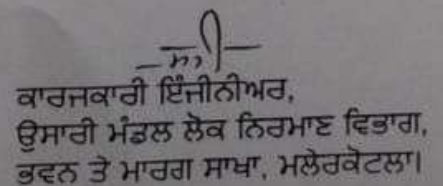 ਕਾਰਜਕਾਰੀ ਇੰਜੀਨੀਅਰ,
ਉਸਾਰੀ ਮੰਡਲ ਲੋਕ ਨਿਰਮਾਣ ਵਿਭਾਗ,
ਭਵਨ ਤੇ ਮਾਰਗ ਸਾਖਾ, ਮਲੇਰਕੋਟਲਾ।